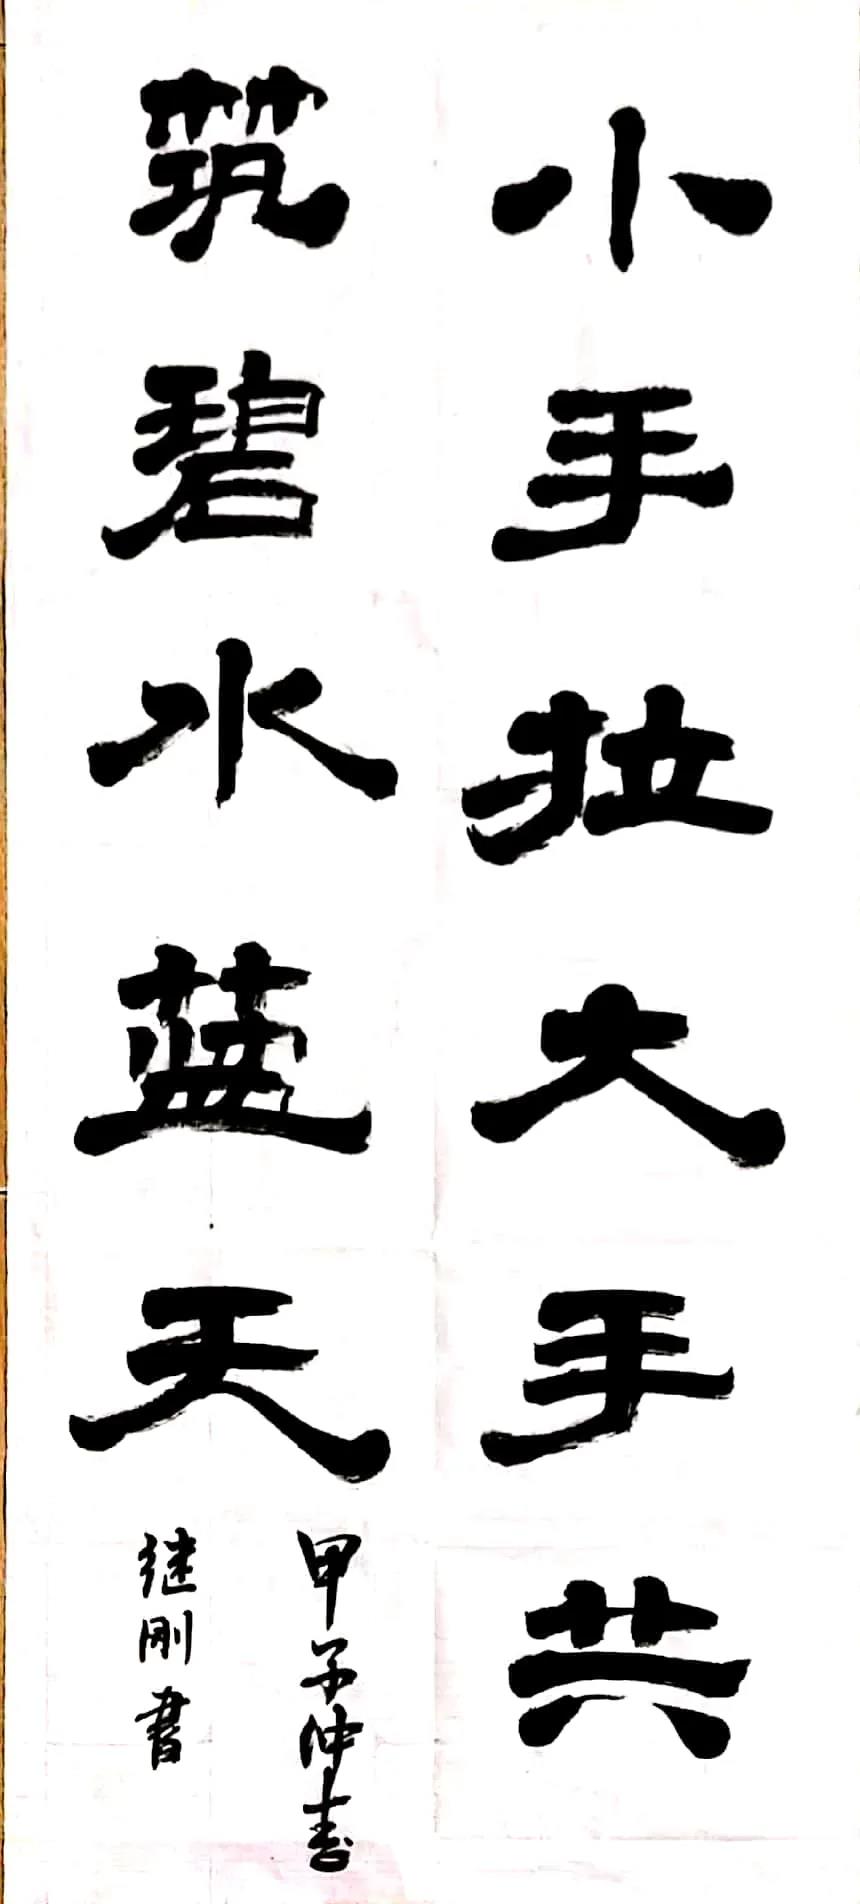 小手拉大手共
筑碧水蓝天
甲子仲春
继刚书